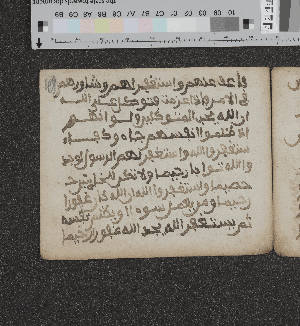 فاعف عنهم واستغفر لهم وشاورهم
في الامر فاذا عزمت فتوكل على الله
ان الله يحب المتوكلين ولو انهم
اذ ظلموا انفسهم جاءوك فا
ستغفروا الله واستغفر لهم الرسول لوجدوا
الله توابا رحيما ولا تكن للخائنين
خصيما واستغفر الله ان الله كان غفورا
رحيما ومن يعمل سوءا او يظلم نفسه
ثم يستغفر الله يجد الله غفورا رحيما